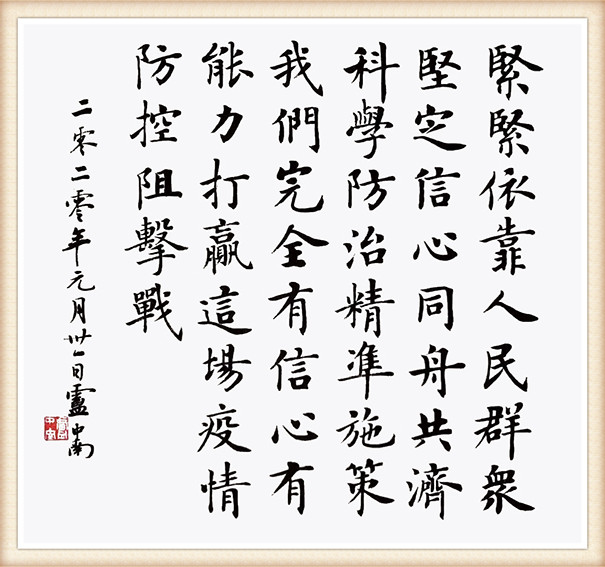 緊緊依靠人民群衆
堅定信心同舟共濟
科學防治精準施策
我們完全有信心有
能力打贏這場疫情
防控阻擊戰
二零二零年元月卅一日盧中南